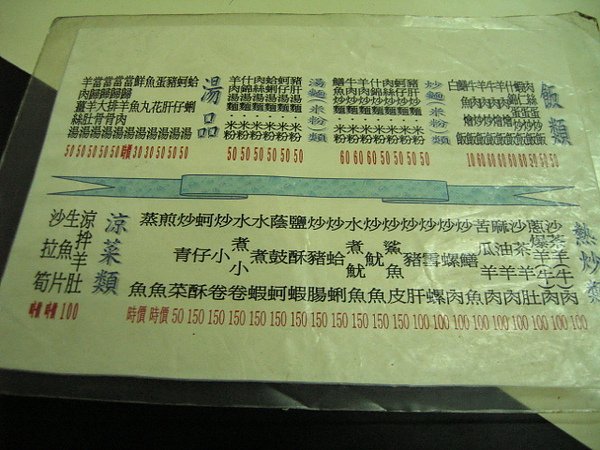 飯類
肉絲蛋炒飯 50
蝦仁蛋炒飯 50
什錦蛋炒飯 50
羊肉炒飯
牛肉炒飯
羊肉燴飯
牛肉燴飯 60
鱔魚燴飯 60
白飯 10
炒麵(米粉)類
豬肝炒麵.米粉 50
蚵仔炒麵.米粉 50
肉絲炒麵.米粉 50
什錦炒麵.米粉 50
羊肉炒麵.米粉 60
牛肉炒麵.米粉 60
鱔魚炒麵.米粉 60
湯麵(米粉)類
豬肝湯麵.米粉 50
蚵仔湯麵.米粉 50
蛤蜊湯麵.米粉 50
肉絲湯麵.米粉 50
什錦湯麵.米粉 50
羊肉湯麵.米粉 50
湯品
蛤蜊湯 50
蚵仔湯 50
豬肝湯 50
蛋花湯 30
魚丸湯 30
鮮魚湯 時價
當歸羊肉湯 50
當歸排骨湯 50
當歸大骨湯 50
當歸羊肚湯 50
羊肉薑絲湯 50
熱炒類
沙茶羊(牛)肉 100
蔥爆羊(牛)肉 100
沙茶羊肚 100
炒羊肉 100
麻油羊肉 100
苦瓜羊肉 100
炒鱔魚 100
炒螺肉 100
炒雪螺 100
炒豬肝 100
炒鯊魚皮 150
炒魷魚 150
水煮魷魚 150
炒蛤蜊 150
炒豬腸 150
鹽酥蝦 150
蔭鼓蚵 150
水煮蝦 150
水煮小卷 150
炒小卷 150
蚵仔酥 150
炒青菜 50
煎魚 時價
蒸魚 時價
涼菜類
涼拌羊肚 100
生魚片 時價
沙拉筍 時價